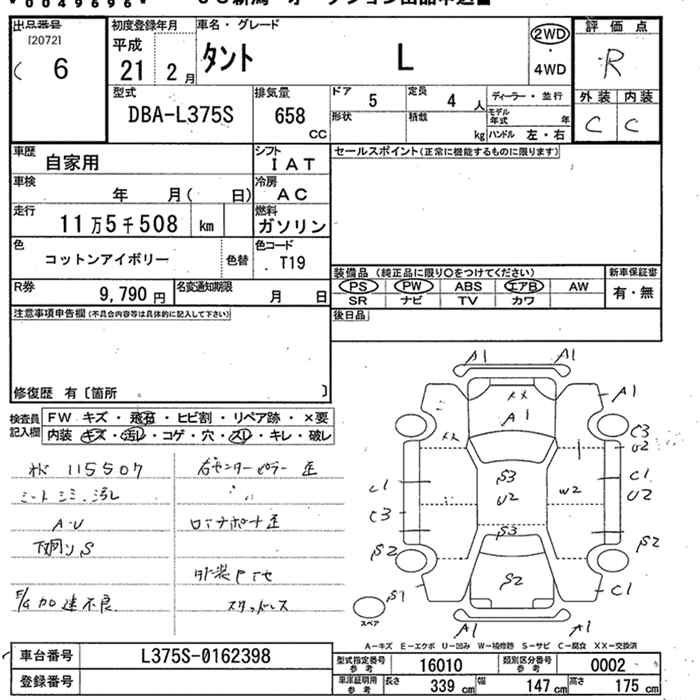 出品番号 初度登録年月 車名・グレード 評価点
[2072]
6 平成 21年 2月 タント L 2WD ・ 4WD R
型式 排気量 ドア 5 定員 4人 ディーラー・並行 外装 内装
DBA-L375S 658 cc 形状 積載 kg モデル年式 年 ハンドル 左・右 C C
車歴 自家用 シフト IAT セールスポイント(正常に機能するものに限ります)
車検 年 月( 日) 冷房 AC
走行 11万5千508 km 燃料 ガソリン
色 コットンアイボリー 色替 色コード T19
装備品 (純正品に限り○をつけてください) 新車保証書
R券 9,790円 名変通知期限 月 日 PS PW ABS エアB AW 有・無
SR ナビ TV カワ
注意事項申告欄(不具合内容等は具体的に記入して下さい) 後日品
修復歴 有〔箇所 〕
検査員記入欄 FW キズ・飛石・ヒビ割・リペア跡・×要
内装 キズ・汚レ・コゲ・穴・スレ・キレ・破レ
115507 右センターピラー 歪
シートシミ、汚レ
A・U
下廻りS
外装
E/G 加速不良 スタッドレス
A1 A1
XX A1 A1
XX C3 U2
C1 S3 U2 W2 C1 U2
C3
S3
S2 S2 S2
S1 C1
A1 A1
スペア
A-キズ E-エクボ U-凹み W-補修跡 S-サビ C-腐食 XX-交換済
車台番号 L375S-0162398 型式指定番号参考 16010 類別区分番号参考 0002
登録番号 車庫証明用参考 長さ 339cm 幅 147cm 高さ 175cm